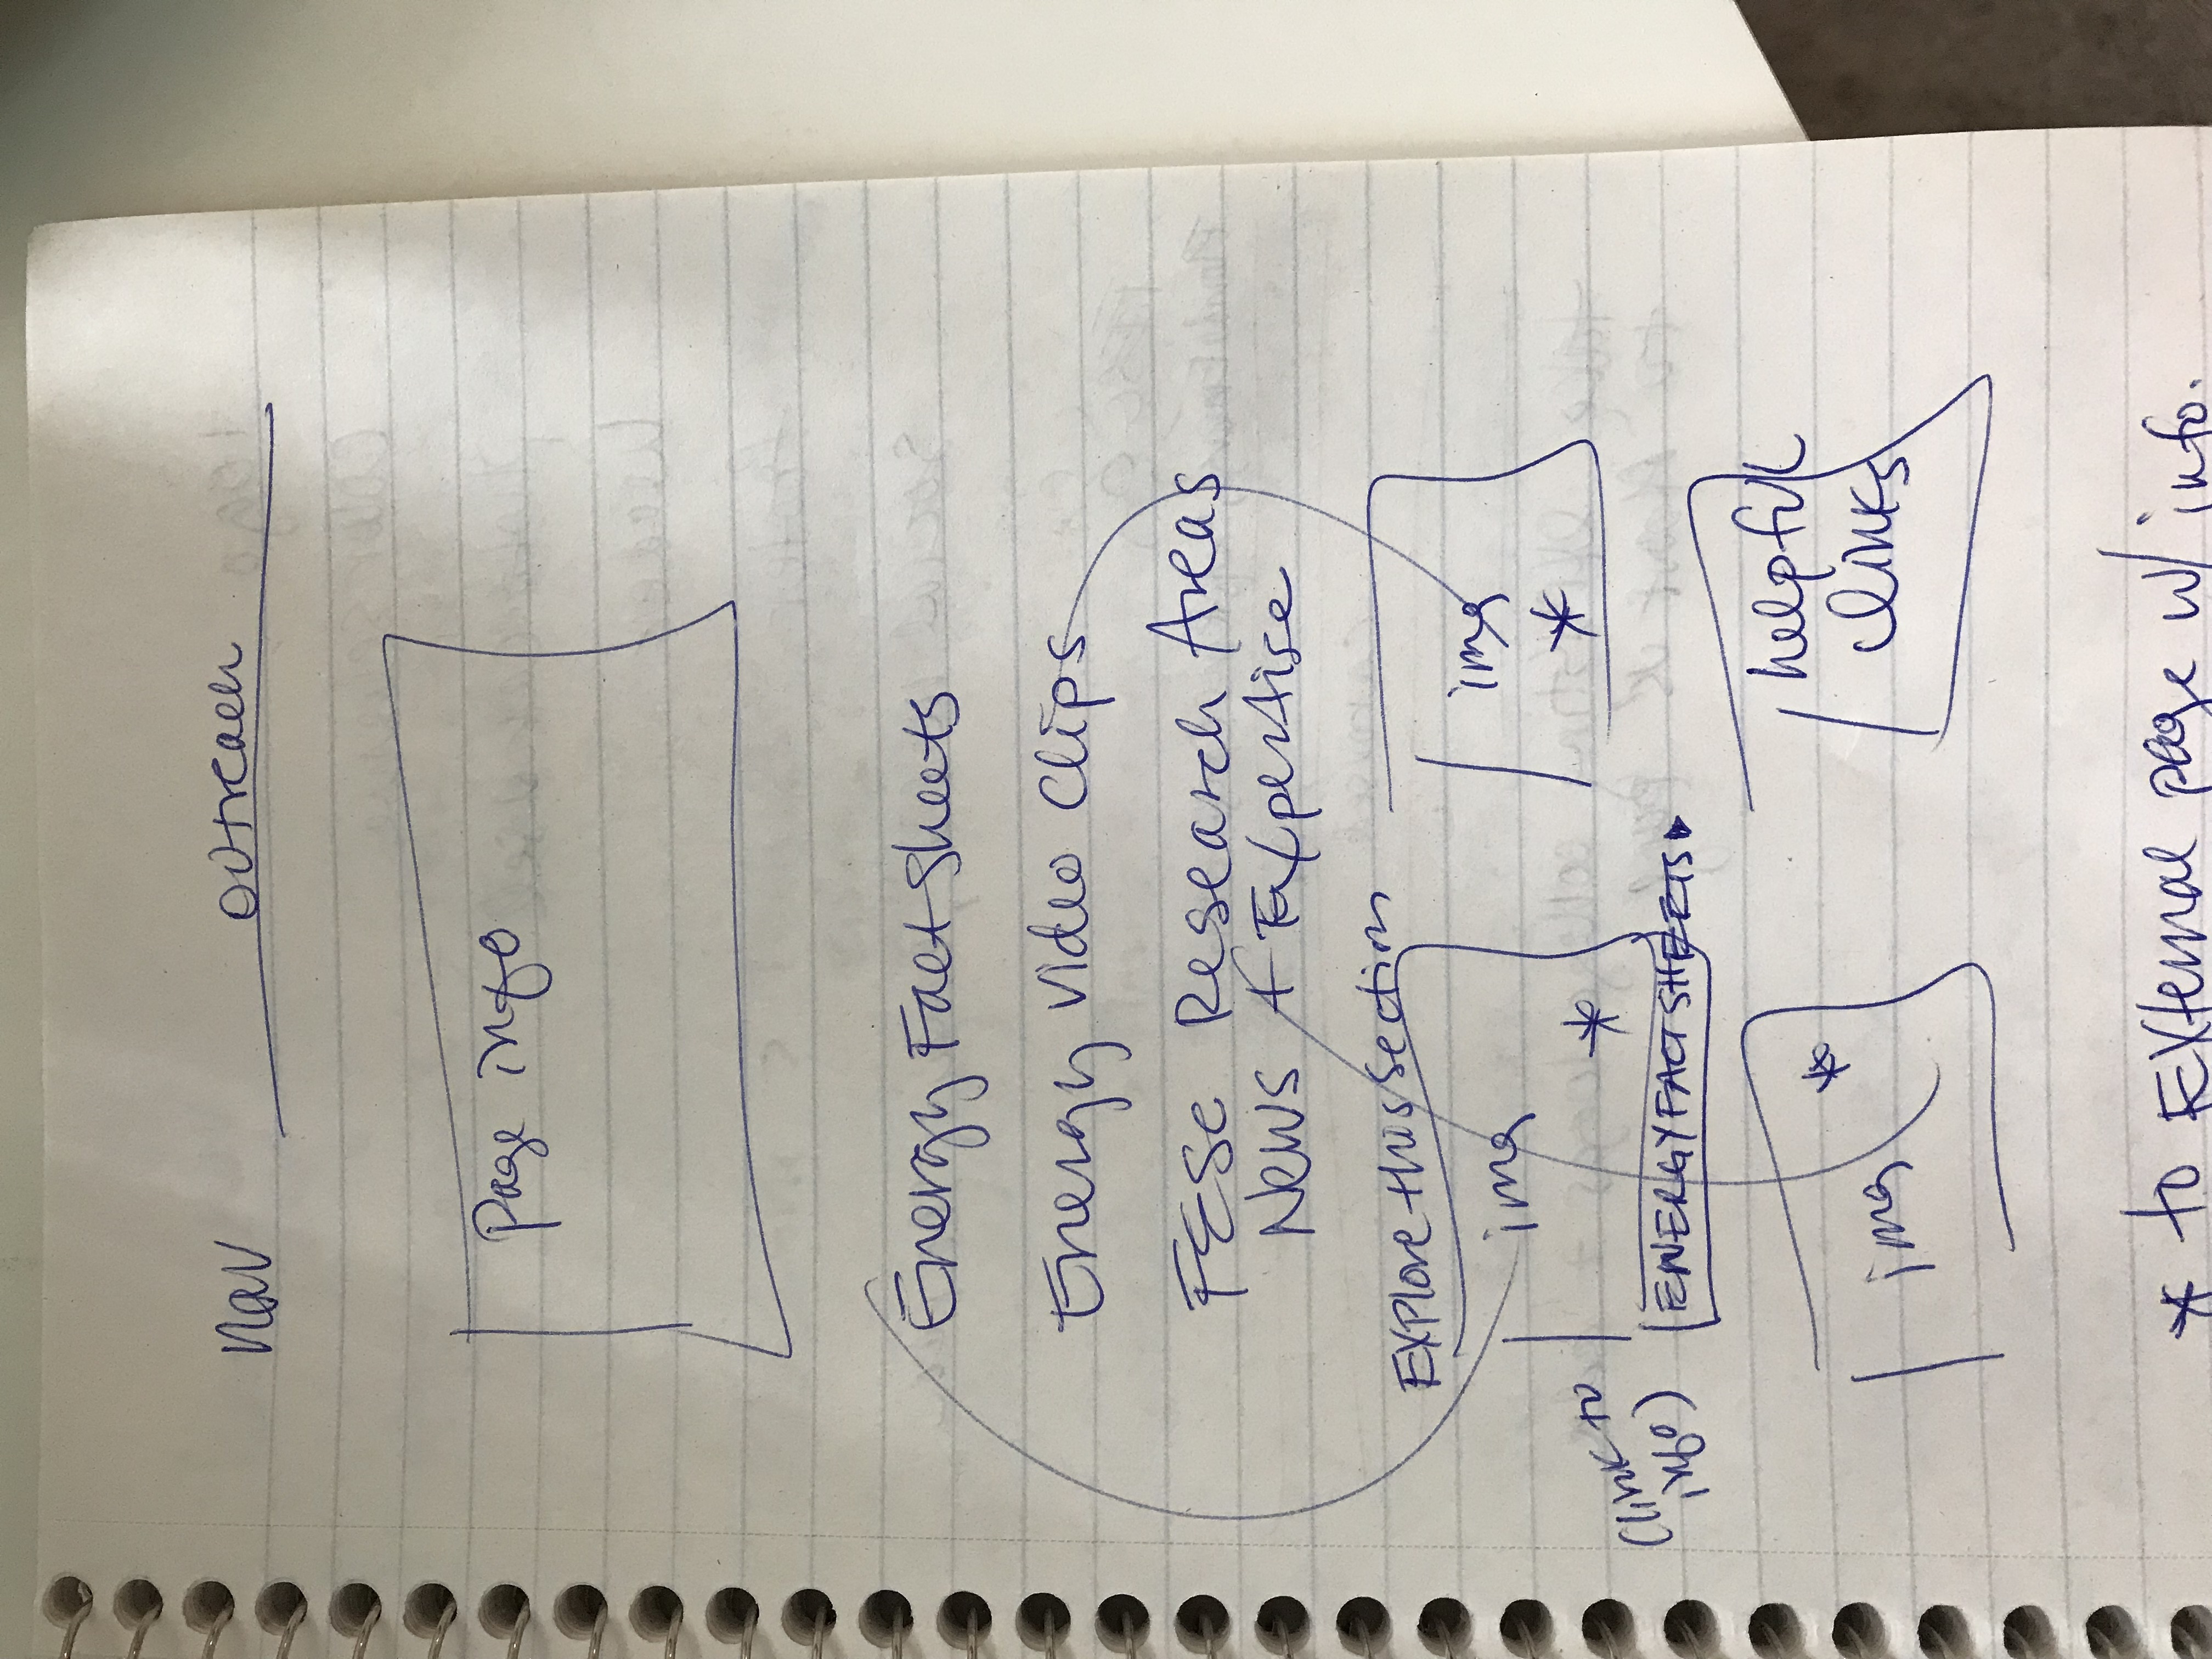 Nav outreach
page info
Energy Fact Sheets
Energy Video Clips
FESC Research Areas
News + Expertise
Explore this section
img
*
img
*
(link to
info)
ENERGY FACT SHEETS
img
*
helpful
links
* to External page w/ info.